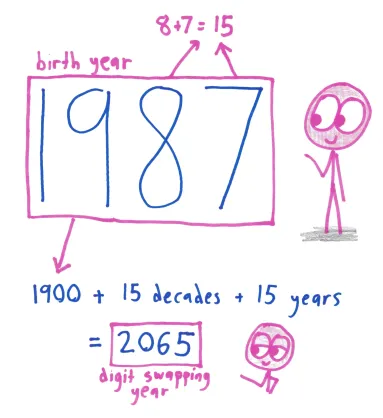 8+7=15
birth year
1987
1900 + 15 decades + 15 years
= 2065
digit swapping
year